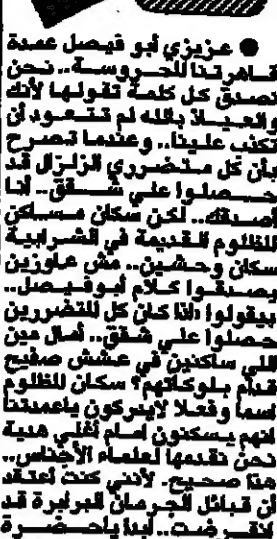 ● عزيزي أبو فيصل عمدة
قاهرتنا المحروسة.. نحن
نصدق كل كلمة تقولها لأنك
والعياذ بالله لم تتعود أن
تكذب علينا.. وعندما تصرح
بأن كل متضرري الزلزال قد
حصلوا علي شقق.. أنا
أصدقك.. لكن سكان مساكن
المظلوم القديمة في الشرابية
سكان وحشين.. مش عاوزين
يصدقوا كلام أبوفيصل..
بيقولوا إذا كان كل المتضررين
حصلوا علي شقق.. أمال مين
اللي ساكنين في عشش صفيح
قدام بلوكاتهم؟ سكان المظلوم
اسما وفعلا لايدركون ياعمدتنا
أنهم يسكنون أمام أغلي هدية
نحن نقدمها لعلماء الأجناس..
هذا صحيح. لأنني كنت أعتقد
أن قبائل الجرمان البرابرة قد
انقرضت.. أبدا ياحضرة